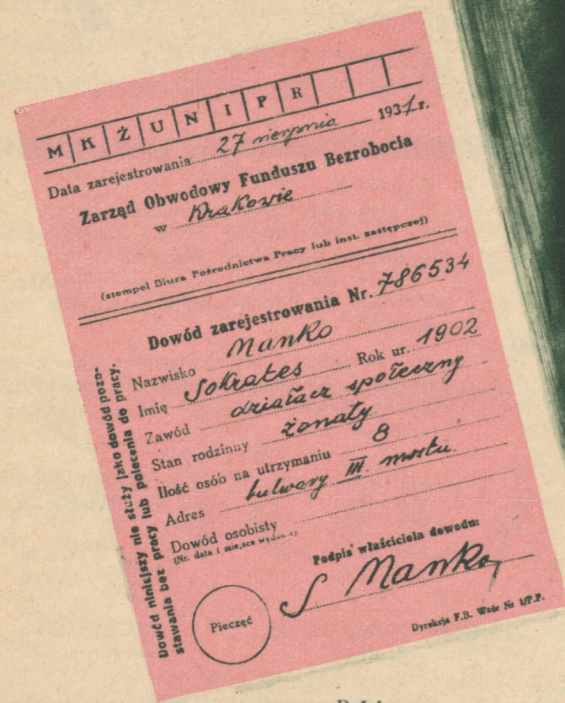 M K Ż U N I P R
Data zarejestrowania 27 sierpnia 1931 r.
Zarząd Obwodowy Funduszu Bezrobocia
w Krakowie
(stempel Biura Pośrednictwa Pracy lub inst. zastępczej)
Dowód zarejestrowania Nr. 786534
Nazwisko Mańko
Imię Sokrates Rok ur. 1902
Zawód działacz społeczny
Stan rodzinny żonaty
Ilość osób na utrzymaniu 8
Adres bulwary III. mostu.
Dowód osobisty
(Nr. data i miejsce wydania)
Podpis właściciela dowodu:
S Mańko
Pieczęć
Dyrekcja F.B. Wzór Nr 1/P.P.
Dowód niniejszy nie służy jako dowód pozo-
stawania bez pracy lub polecenia do pracy.